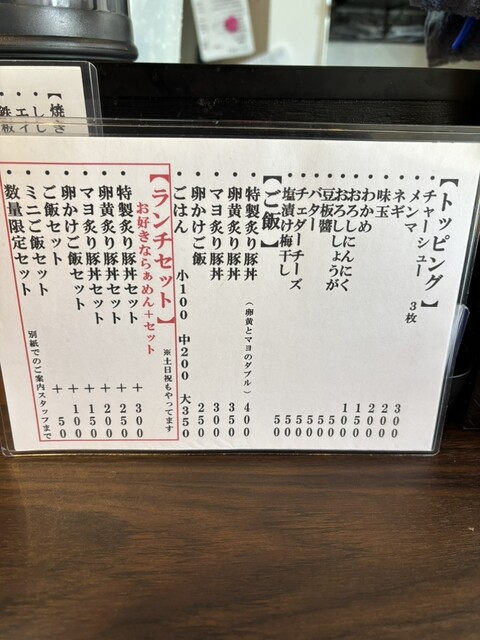 【トッピング】
・チャーシュー 3枚 300
・メンマ 200
・ネギ 200
・味玉 100
・わかめ 100
・おろしにんにく 50
・おろししょうが 50
・豆板醤 50
・バター 50
・チェダーチーズ 50
・塩漬け梅干し 50
【ご飯】
・特製炙り豚丼 (卵黄とマヨのダブル) 400
・卵黄炙り豚丼 350
・マヨ炙り豚丼 300
・卵かけご飯 250
・ごはん 小100 中200 大350
【ランチセット】 ※土日祝もやってます
お好きならぁめん+セット
・特製炙り豚丼セット + 300
・卵黄炙り豚丼セット + 250
・マヨ炙り豚丼セット + 200
・卵かけご飯セット + 150
・ご飯セット + 100
・ミニご飯セット + 50
・数量限定セット 別紙でのご案内スタッフまで
【焼き